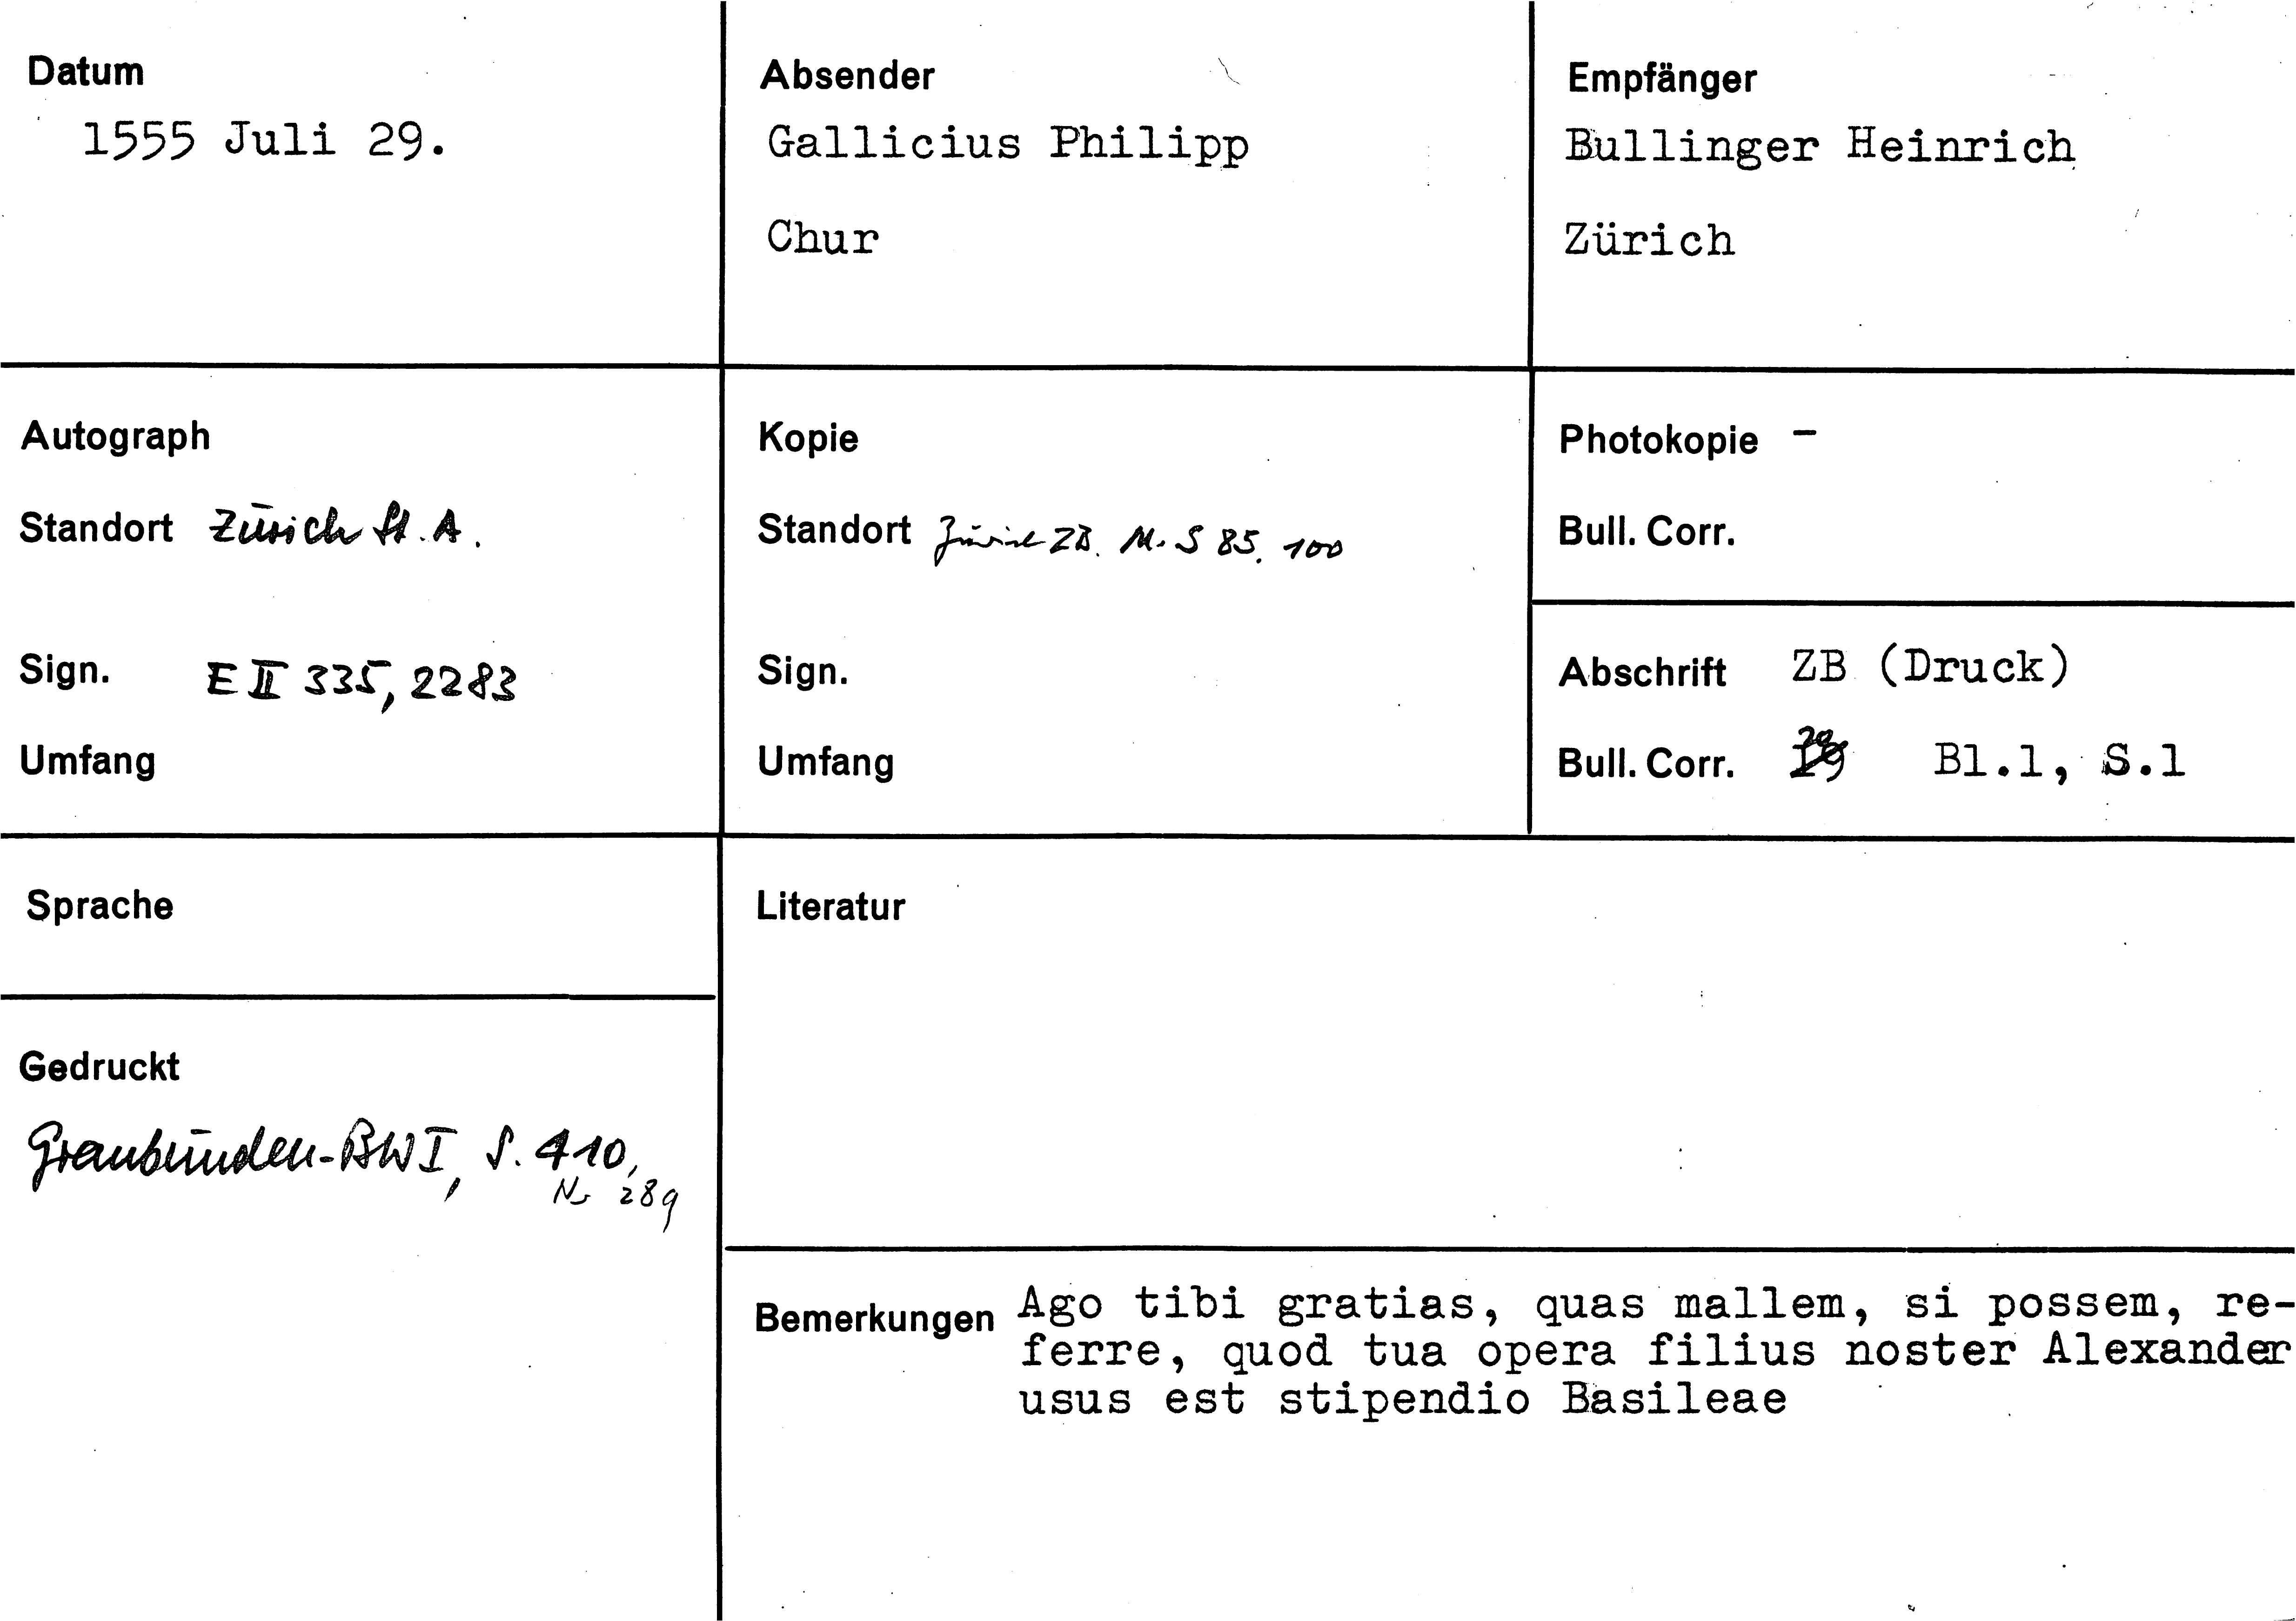 Datum
1555 Juli 29.
Absender
Gallicius Philipp
Chur
Empfänger
Bullinger Heinrich
Zürich
Autograph
Standort Zürich St. A.
Sign. E II 335, 2283
Umfang
Kopie
Standort Zürich ZB. Ms S 85, 100
Sign.
Umfang
Photokopie -
Bull. Corr.
Abschrift ZB (Druck)
Bull. Corr. Bl.1, S.1
Sprache
Gedruckt
Graubünden-BW I, S. 410,
Nr 289
Literatur
Bemerkungen Ago tibi gratias, quas mallem, si possem, re-
ferre, quod tua opera filius noster Alexander
usus est stipendio Basileae